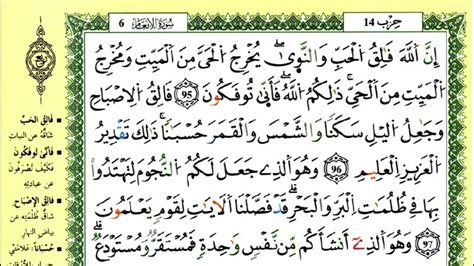 حزب 14
سُورَةُ الأَنْعَام 6
إِنَّ اَللَّهَ فَالِقُ اُلْحَبِّ وَالنَّوٰىۖ يُخْرِجُ اُلْحَيَّ مِنَ اَلْمَيِّتِ وَمُخْرِجُ
اُلْمَيِّتِ مِنَ اَلْحَيِّۖ ذَٰلِكُمُ اُللَّهُۖ فَأَنّٰى تُوفَكُونَۖ 95 فَالِقُ اُلْإِصْبَاحِ
وَجَٰعِلُ اُلَّيْلِ سَكَنًا وَالشَّمْسَ وَالْقَمَرَ حُسْبَانًاۖ ذَٰلِكَ تَقْدِيرُ
اُلْعَزِيزِ اِلْعَلِيمِۖ 96 وَهُوَ اَلذِے جَعَلَ لَكُمُ اُلنُّجُومَ لِتَهْتَدُواْ
بِهَا فِے ظُلُمَٰتِ اِلْبَرِّ وَالْبَحْرِۖ قَدْ فَصَّلْنَا اَلْأٓيَٰتِ لِقَوْمٍ يَعْلَمُونَۖ
97 وَهُوَ اَلذِےٓ أَنشَأَكُم مِّن نَّفْسٍ وَٰحِدَةٍ فَمُسْتَقَرٌّ وَمُسْتَوْدَعٌۖ
فَالِقُ الحَبِّ
شاقُّهُ عن النبات
فَأَنّٰى تُوفَكُونَ
فكيف تُصرفون
عن عبادته
فَالِقُ الإِصْبَاحِ
شاقُّ ظُلمتِه عن
بياض النهار
حُسْبَاناً